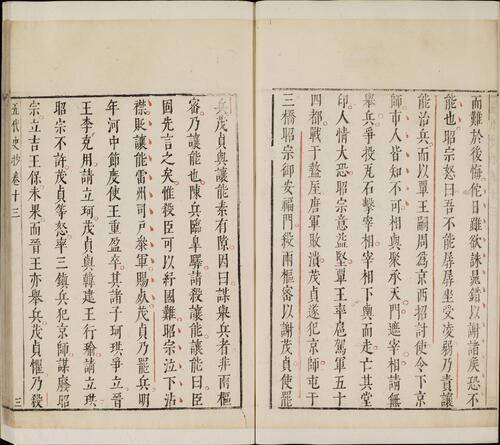 而難於後悔佗日雖欲誅晁錯以謝諸矦恐不
能也昭宗怒曰吾不能孱孱坐受凌弱乃責讓
能治兵而以覃王嗣周爲京西招討使令下京
師市人皆知不可相與聚承天門遮宰相請無
舉兵爭投瓦石擊宰相宰相下輿而走亡其堂
印人情大恐昭宗意益堅覃王率扈駕軍五十
四都戰于盩厔唐軍敗潰茂貞遂犯京師屯于
三橋昭宗御安福門殺兩樞密以謝茂貞使罷
兵茂貞與讓能素有隙因曰謀舉兵者非兩樞
密乃讓能也陳兵臨臯驛請殺讓能讓能曰臣
固先言之矣惟殺臣可以紓國難昭宗泣下沾
襟貶讓能雷州司戶參軍賜死茂貞乃罷兵明
年河中節度使王重盈卒其諸子珂珙爭立晉
王李克用請立珂茂貞與韓建王行瑜請立珙
昭宗不許茂貞等怒率三鎮兵犯京師謀廢昭
宗立吉王保未果而晉王亦舉兵茂貞懼乃殺
五代史抄卷十三
三